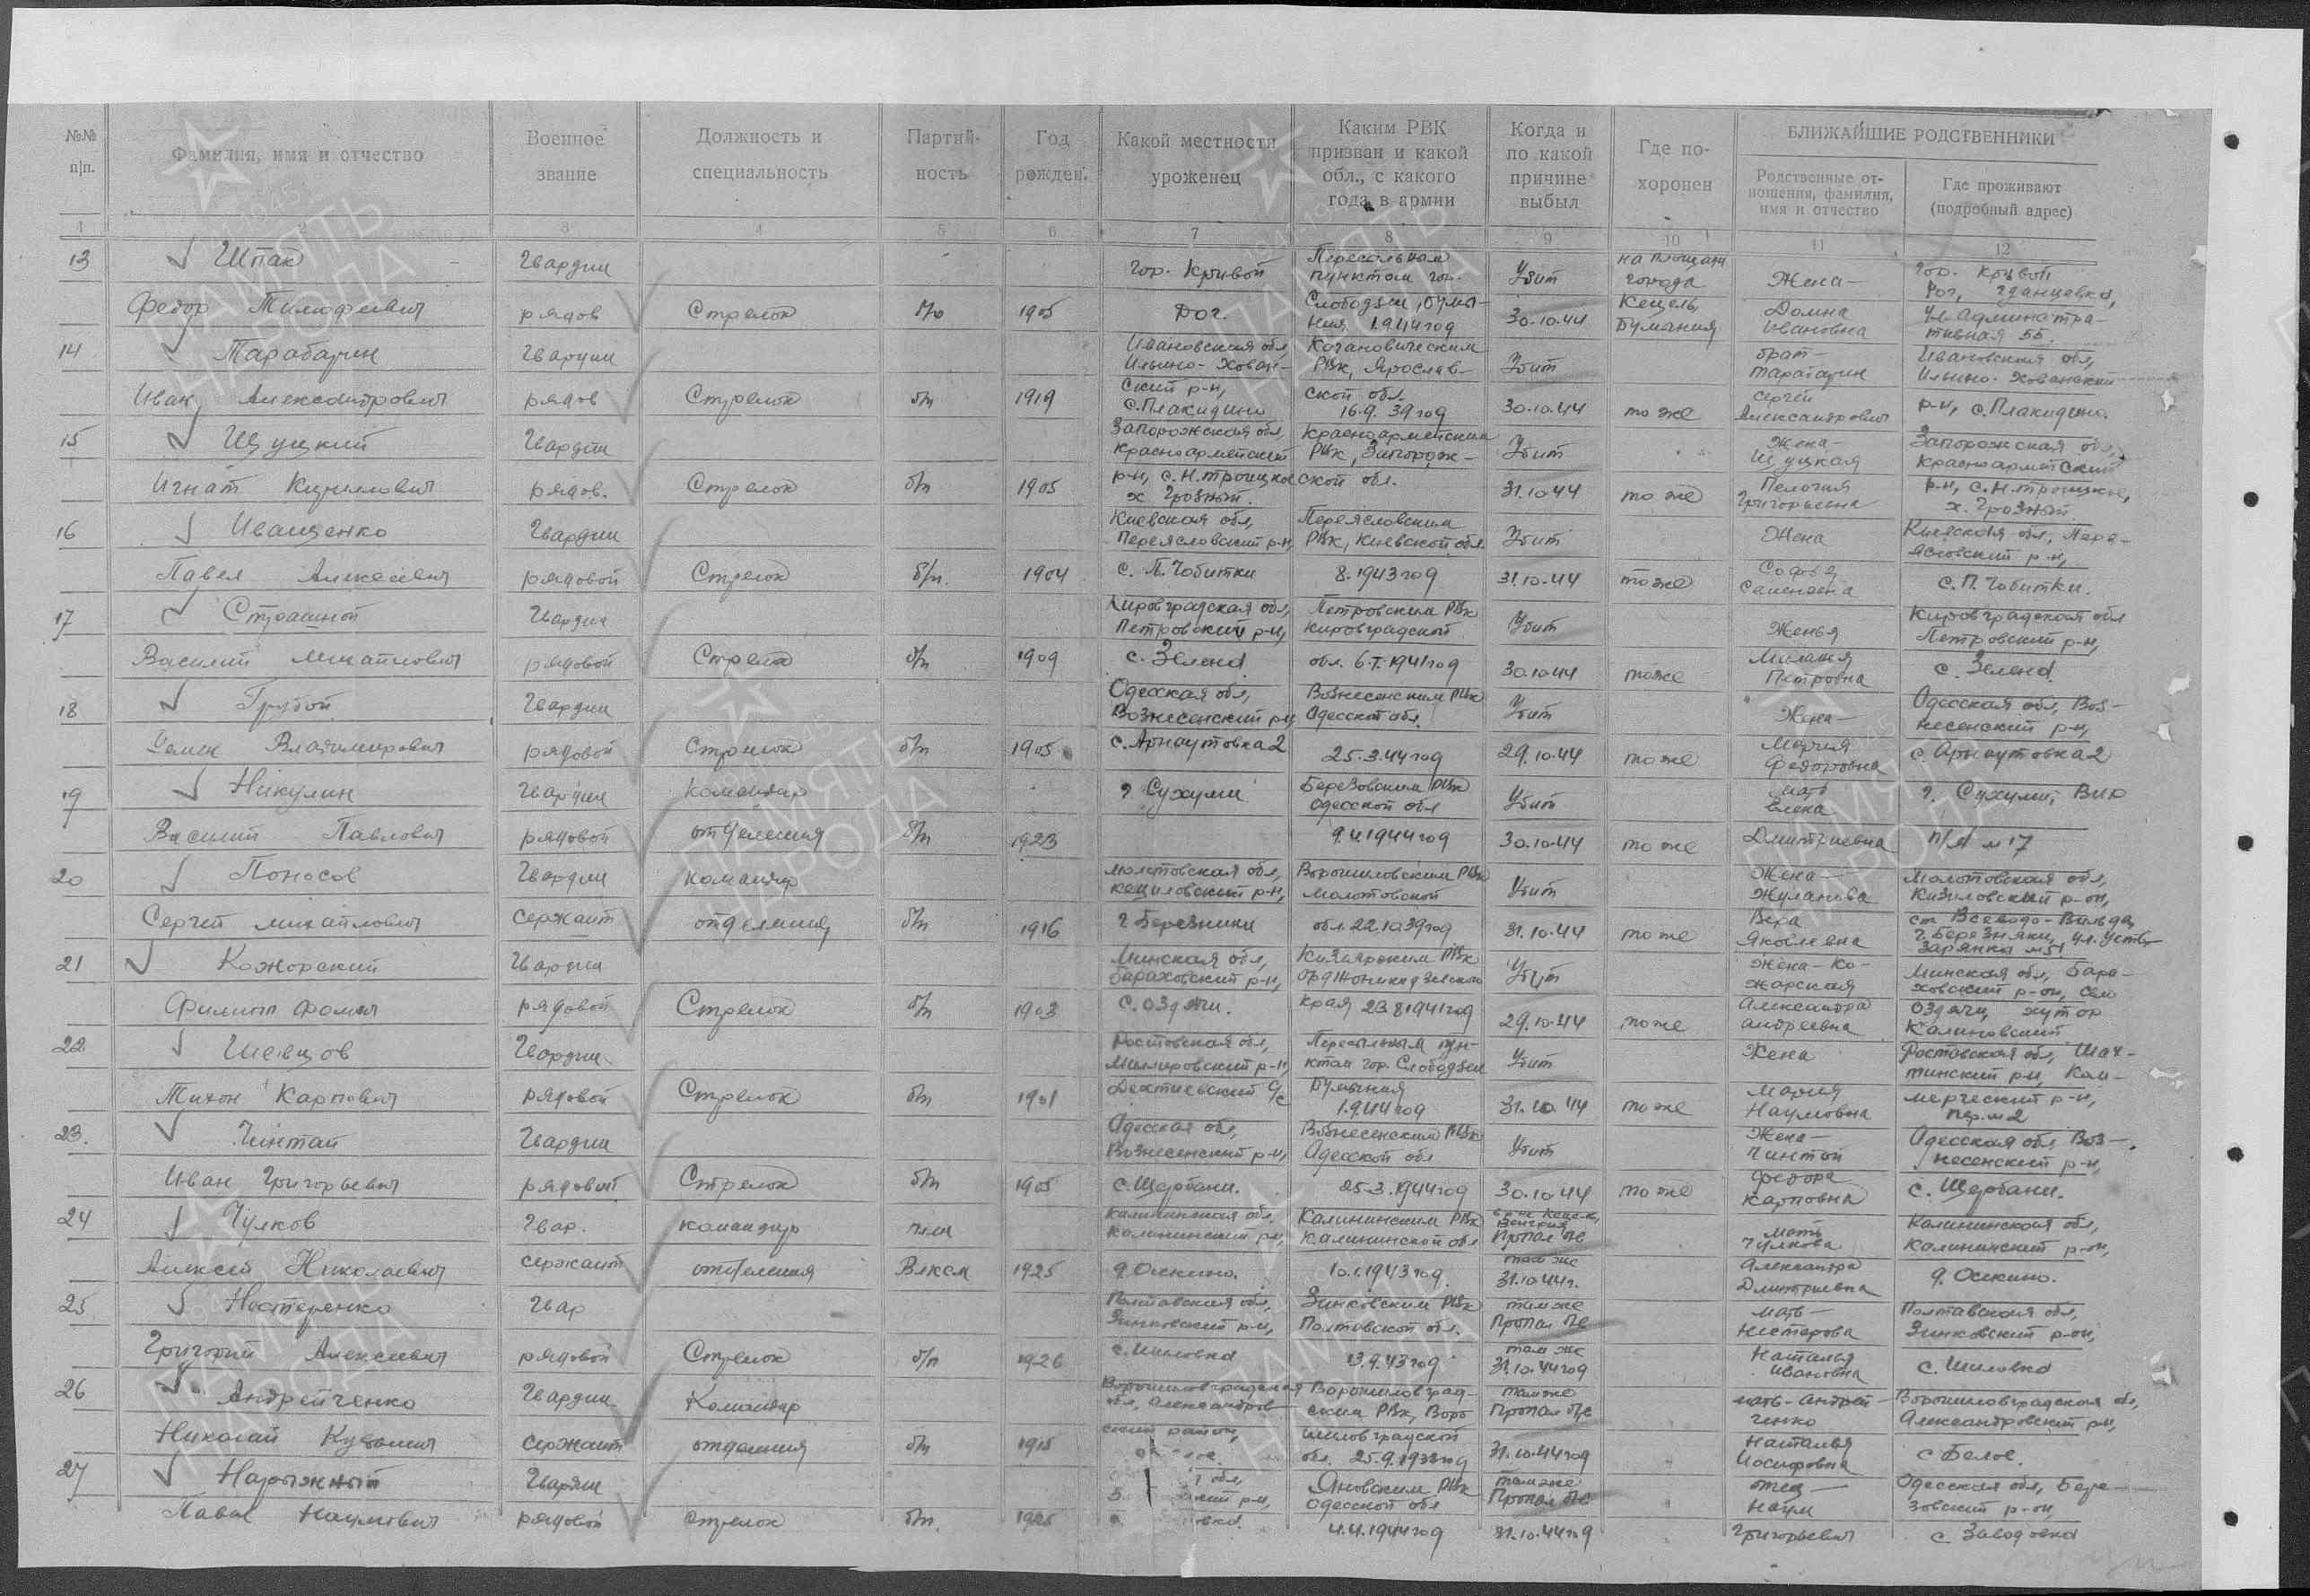 №№ п|п.
Фамилия, имя и отчество
Военное звание
Должность и специальность
Партий-ность
Год рожден.
Какой местности уроженец
Каким РВК призван и какой обл., с какого года в армии
Когда и по какой причине выбыл
Где по-хоронен
БЛИЖАЙШИЕ РОДСТВЕННИКИ
Родственные от-ношения, фамилия, имя и отчество
Где проживают (подробный адрес)
1 2 3 4 5 6 7 8 9 10 11 12
13 Шпак Гвардии гор. Кривой Пересыльным пунктом гор. Убит на площади города Жена— гор. Кривой
Федор Тимофеевич рядов Стрелок 1905 Рог. 1944 год 30.10.44 Домна Ивановна Рог,
14 Тарабарин Гвардии Ивановская обл Убит брат— Ивановская обл,
Иван Александрович рядов Стрелок б/п 1919 ский р-н, с. Плакидино РВК, Ярослав-ской обл. 16.9.39 год 30.10.44 то же Сергей Александрович р-н, с. Плакидино.
15 Щуцкий Гвардии Запорожская обл, Красноармейский Красноармейским РВК, Запорож- Убит Жена— Щуцкая Запорожская обл, Красноармейский
Игнат Кириллович рядов. Стрелок б/п 1905 р-н, с. Н.троицкое х Грозный. ской обл. 31.10.44 то же Григорьевна р-н, с. Н.троицкое, х. Грозный.
16 Иващенко Гвардии Киевская обл, Переясловский р-н, Переясловским РВК, Киевской обл. Убит Жена Киевская обл, Пере-ясловский р-н,
Павел Алексеевич рядовой Стрелок б/п. 1904 с. П. Чобитки 8.1943 год 31.10.44 то же с. П. Чобитки.
17 Страшной Гвардии Кировградская обл, Петровский р-н, Петровским РВК Кировградской Убит Кировградская обл Петровский р-н,
Василий Михайлович рядовой б/п 1909 обл. 1941 год 30.10.44 то же Петровна
18 Грубой Гвардии Одесская обл, Вознесенский р-н Вознесенским РВК Одесской обл. Убит Жена— Одесская обл, Воз-несенский р-н,
Владимирович рядовой Стрелок б/п 1905 с. Арнаутовка 2 25.3.44 год 29.10.44 то же Мария Федоровна с. Арнаутовка 2
19 Никулин Гвардия Командир г Сухуми Березовским РВК Одесской обл Убит мать Елена г. Сухуми,
Василий Павлович рядовой отделения б/п 1923 1944 год 30.10.44 то же Дмитриевна
20 Поносов Гвардии Командир Молотовская обл, Ворошиловским РВК Молотовской Убит Жена— Жуланова Молотовская обл,
Сергей Михайлович сержант отделения б/п 1916 г Березники обл. 22.10.39 год 31.10.44 то же Вера Яковлевна ст Всеволодо-Вильва, г. Березняки,
21 Кожорский Гвардии Минская обл, Убит Жена-Ко-жарская Минская обл,
Филипп Фомич рядовой Стрелок б/п 1903 с. Оздячи. края 23.8.1941 год 29.10.44 то же Александра Андреевна Оздячи, хутор Калиновский
22 Шевцов Гвардии Ростовская обл, Миллировский р-н Пересыльным пун-ктом гор. Слободзеи Убит Жена Ростовская обл, Шах-тинский р-н, Ком-
Тихон Карпович рядовой Стрелок б/п 1901 1.9.44 год 31.10.44 то же Мария Наумовна мерческий р-н, пер. № 2
23. Чинтай Гвардии Одесская обл, Вознесенский р-н, Вознесенским РВК Одесской обл Убит Жена— Одесская обл Воз-несенский р-н,
Иван Григорьевич рядовой Стрелок б/п 1905 с. Щербани. 25.3.1944 год 30.10.44 то же Федора Карповна с. Щербани.
24 Чулков Гвар. Командир член Калининская обл. Калининский р-н, Калининским РВК Калининской обл Венгрия Пропал б/в мать Чулкова Калининская обл, Калининский р-он,
Алексей Николаевич сержант отделения Влксм 1925 д. Оскино. 10.1.1943 год. там же 31.10.44 г. Александра Дмитриевна д. Оскино.
25 Нестеренко Гвар Полтавская обл, Зинковский р-н, Зинковским РВК Полтавской обл. там же Пропал б/в мать— Нестерова Полтавская обл, Зинковский р-он,
Григорий Алексеевич рядовой Стрелок б/п 1926 с. Шиловка 13.9.43 год там же 31.10.44 год Наталья Ивановна с. Шиловка
26 Андрейченко Гвардии Командир Ворошиловградская обл, Александров- Ворошиловград-ским РВК, Воро там же Пропал б/в мать-Андрей-ченко Ворошиловградская обл, Александровский р-н,
Николай сержант отделения б/п 1915 ский район, шиловградской обл. 25.9.1938 год 31.10.44 год Наталья Иосифовна с Белое.
27 Нарыжный Гвардии обл, р-н, Яновским РВК Одесской обл там же Пропал б/в отец— Одесская обл, Бере-
Павел Наумович рядовой Стрелок б/п. 4.4.1944 год 31.10.44 год Наум Григорьевич зовский р-он, с Заводовка